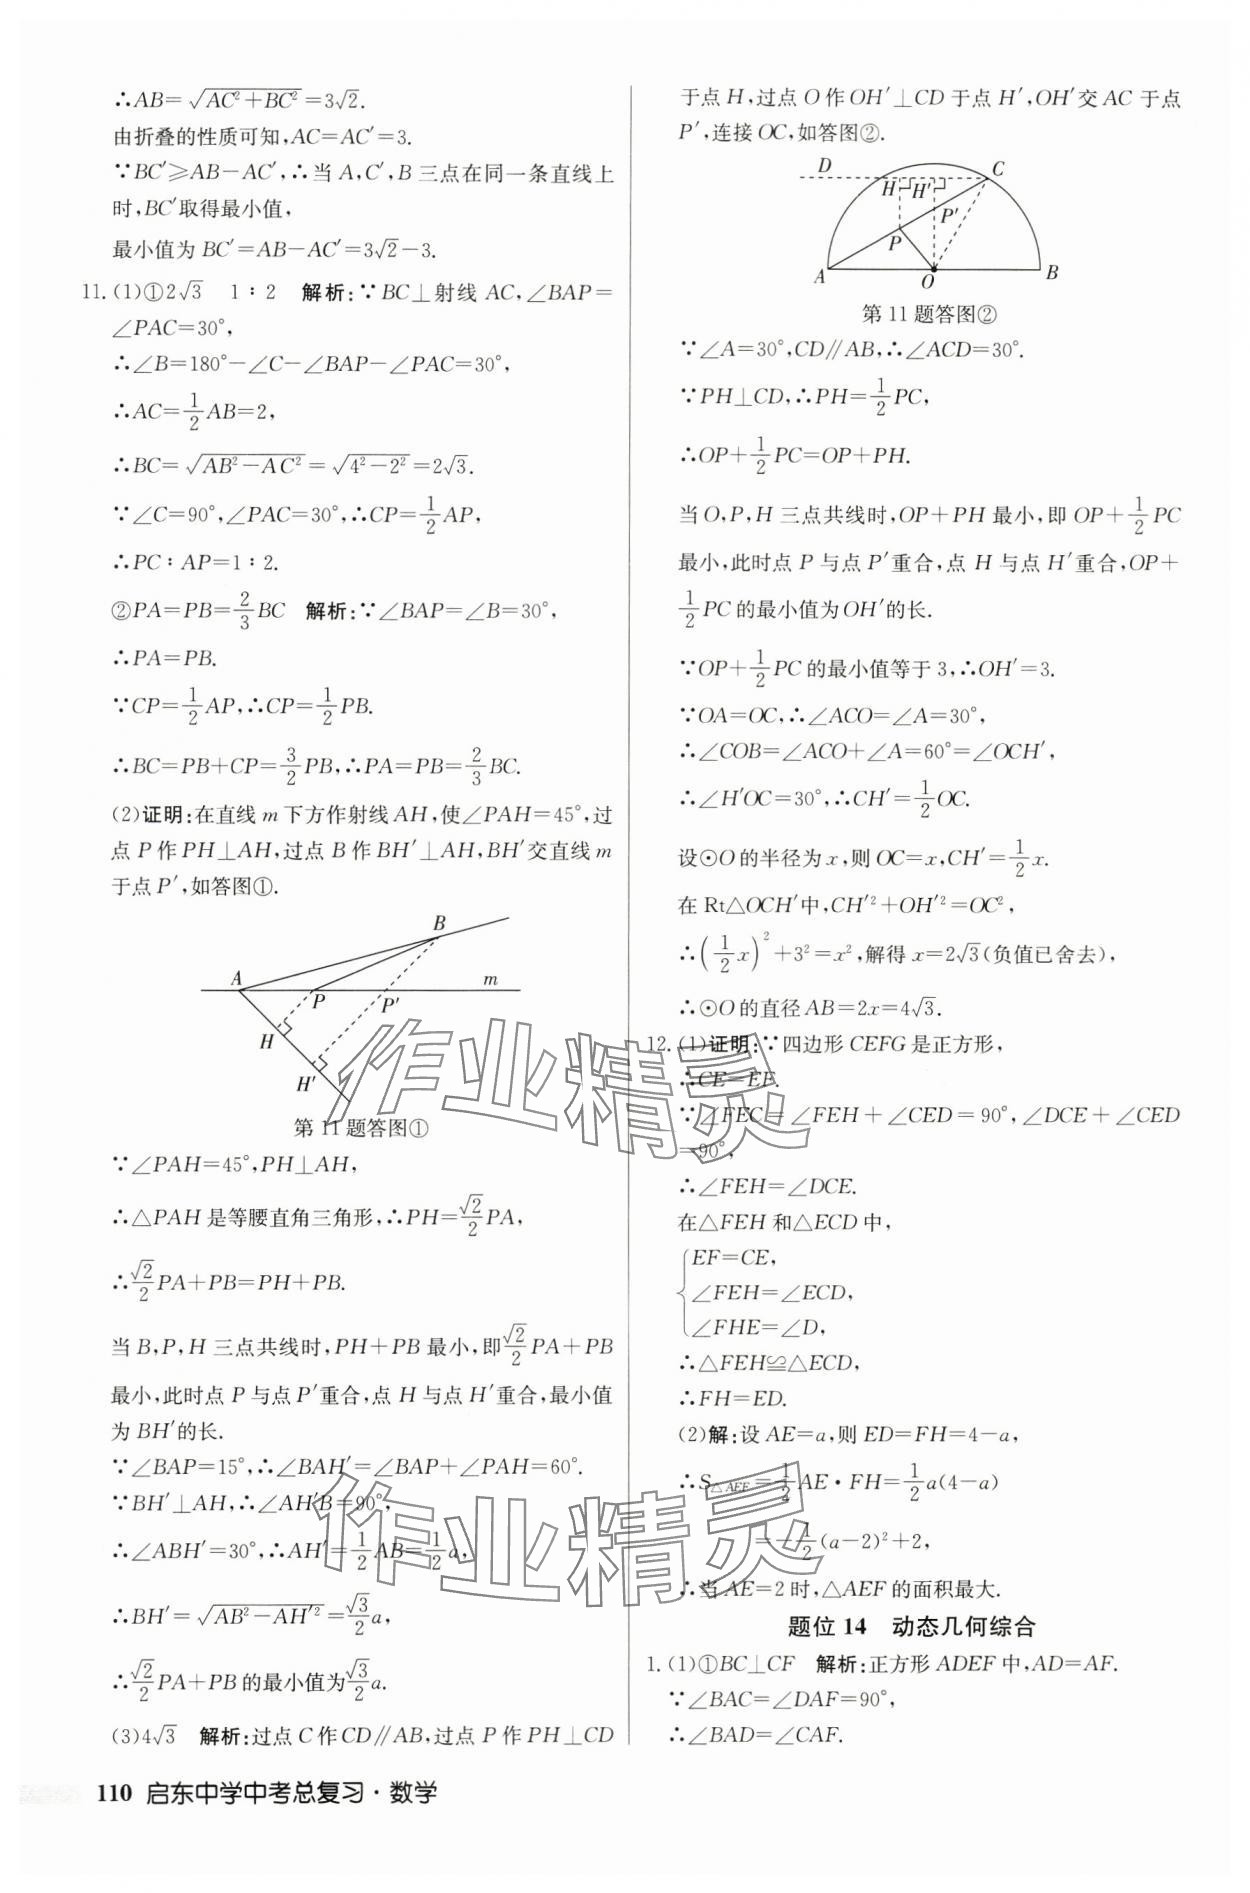 ∴AB=√(AC²+BC²)=3√2.
由折叠的性质可知,AC=AC′=3.
∵BC′⩾AB−AC′,∴当 A,C′,B 三点在同一条直线上
时,BC′取得最小值,
最小值为 BC′=AB−AC′=3√2−3.
11. (1)①2√3 1∶2 解析:∵BC⊥射线 AC,∠BAP=
∠PAC=30°,
∴∠B=180°−∠C−∠BAP−∠PAC=30°,
∴AC=1/2AB=2,
∴BC=√(AB²−AC²)=√(4²−2²)=2√3.
∵∠C=90°,∠PAC=30°,∴CP=1/2AP,
∴PC∶AP=1∶2.
②PA=PB=2/3BC 解析:∵∠BAP=∠B=30°,
∴PA=PB.
∵CP=1/2AP,∴CP=1/2PB.
∴BC=PB+CP=3/2PB,∴PA=PB=2/3BC.
(2)证明:在直线 m 下方作射线 AH,使∠PAH=45°,过
点 P 作 PH⊥AH,过点 B 作 BH′⊥AH,BH′交直线 m
于点 P′,如答图①.
B
A
P
P′
m
H
H′
第 11 题答图①
∵∠PAH=45°,PH⊥AH,
∴△PAH 是等腰直角三角形,∴PH=√2/2PA,
∴√2/2PA+PB=PH+PB.
当 B,P,H 三点共线时,PH+PB 最小,即√2/2PA+PB
最小,此时点 P 与点 P′重合,点 H 与点 H′重合,最小值
为 BH′的长.
∵∠BAP=15°,∴∠BAH′=∠BAP+∠PAH=60°.
∵BH′⊥AH,∴∠AH′B=90°,
∴∠ABH′=30°,∴AH′=1/2AB=1/2a,
∴BH′=√(AB²−AH′²)=√3/2a,
∴√2/2PA+PB 的最小值为√3/2a.
(3)4√3 解析:过点 C 作 CD∥AB,过点 P 作 PH⊥CD
于点 H,过点 O 作 OH′⊥CD 于点 H′,OH′交 AC 于点
P′,连接 OC,如答图②.
D
C
H
H′
P′
P
A
O
B
第 11 题答图②
∵∠A=30°,CD∥AB,∴∠ACD=30°.
∵PH⊥CD,∴PH=1/2PC,
∴OP+1/2PC=OP+PH.
当 O,P,H 三点共线时,OP+PH 最小,即 OP+1/2PC
最小,此时点 P 与点 P′重合,点 H 与点 H′重合,OP+
1/2PC 的最小值为 OH′的长.
∵OP+1/2PC 的最小值等于 3,∴OH′=3.
∵OA=OC,∴∠ACO=∠A=30°,
∴∠COB=∠ACO+∠A=60°=∠OCH′,
∴∠H′OC=30°,∴CH′=1/2OC.
设⊙O 的半径为 x,则 OC=x,CH′=1/2x.
在 Rt△OCH′中,CH′²+OH′²=OC²,
∴(1/2x)²+3²=x²,解得 x=2√3(负值已舍去),
∴⊙O 的直径 AB=2x=4√3.
12. (1)证明:∵四边形 CEFG 是正方形,
∴CE=EF.
∵∠FEC=∠FEH+∠CED=90°,∠DCE+∠CED
=90°,
∴∠FEH=∠DCE.
在△FEH 和△ECD 中,
{EF=CE,
∠FEH=∠ECD,
∠FHE=∠D,
∴△FEH≌△ECD,
∴FH=ED.
(2)解:设 AE=a,则 ED=FH=4−a,
∴S△AEF=1/2AE·FH=1/2a(4−a)
=−1/2(a−2)²+2,
∴当 AE=2 时,△AEF 的面积最大.
题位 14 动态几何综合
1. (1)①BC⊥CF 解析:正方形 ADEF 中,AD=AF.
∵∠BAC=∠DAF=90°,
∴∠BAD=∠CAF.
110 启东中学中考总复习·数学
作业精灵
作业精灵